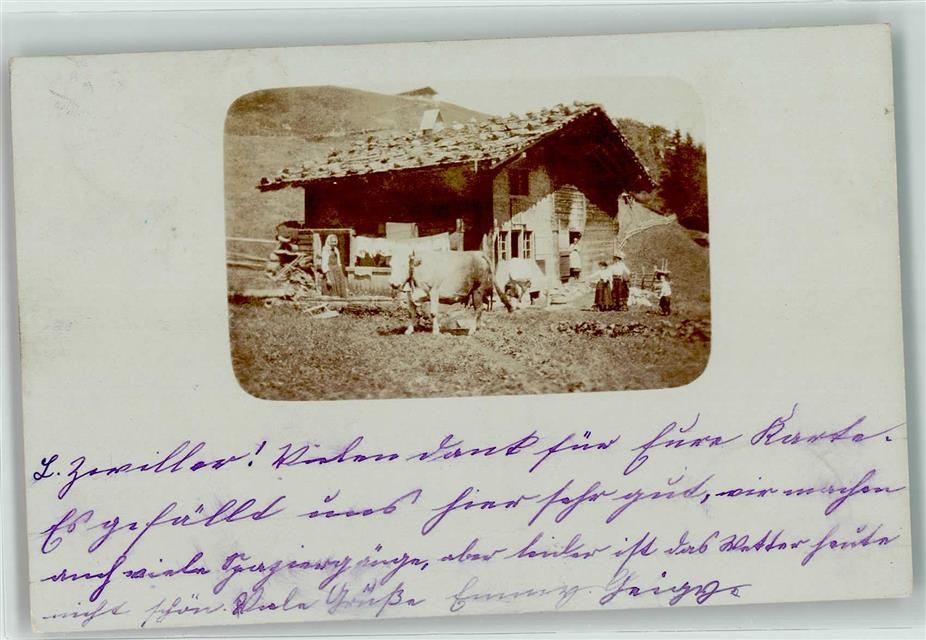 L. Zwiller! Vielen dank für Eure Karte.
Es gefällt uns hier sehr gut, wir machen
auch viele Spaziergänge, aber leider ist das Wetter heute
nicht schön. Viele Grüße Emmy